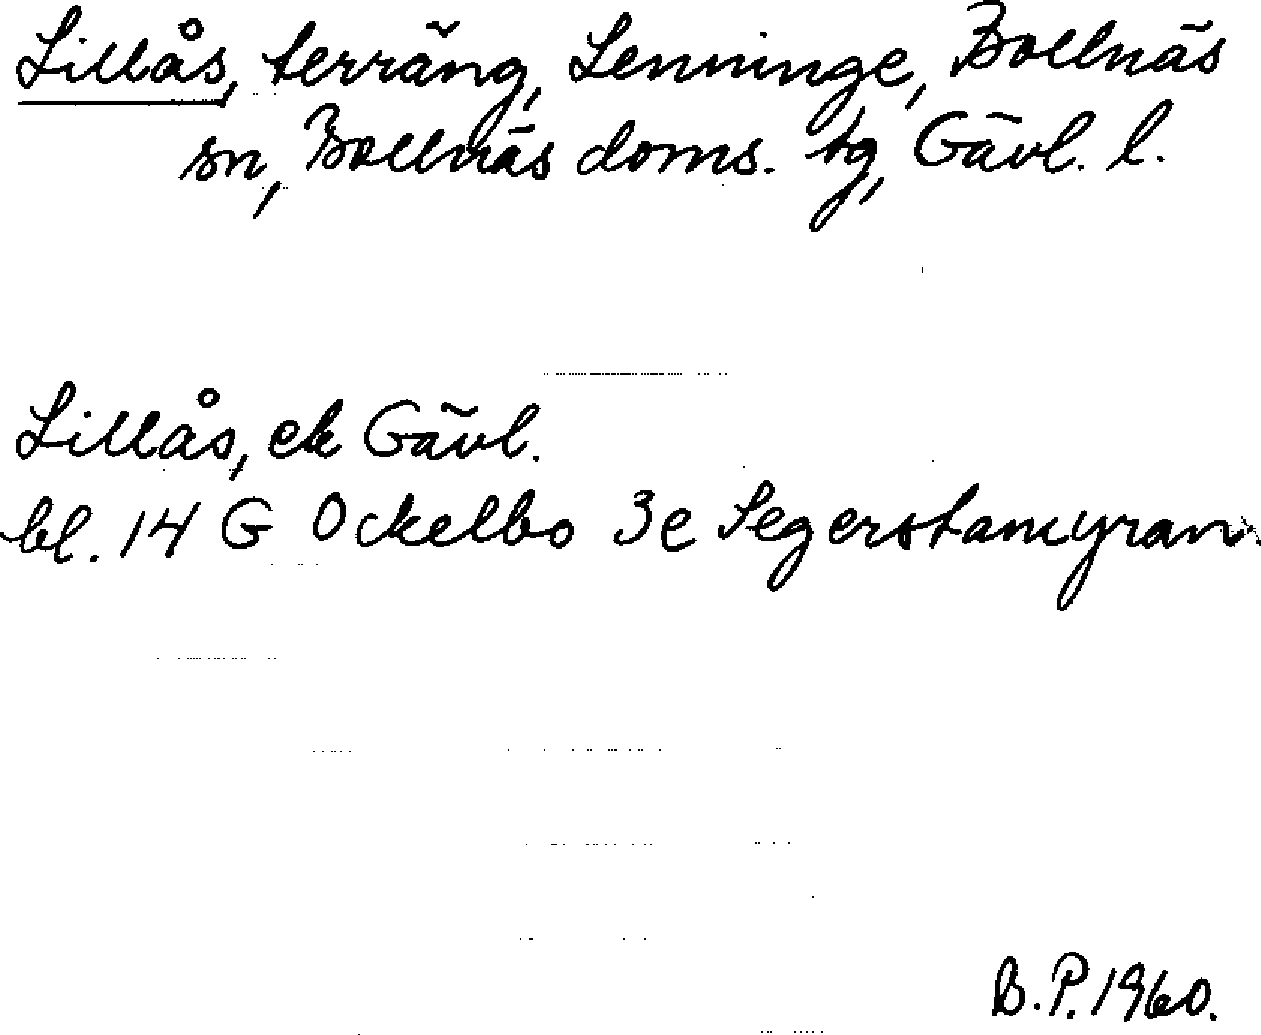 Lillås, terräng, Lenninge, Bollnäs
sn, Bollnäs doms. tg, Gävl. l.
Lillås, ek Gävl.
bl. 14 G Ockelbo 3e Segerstamyran.
B.P. 1960.